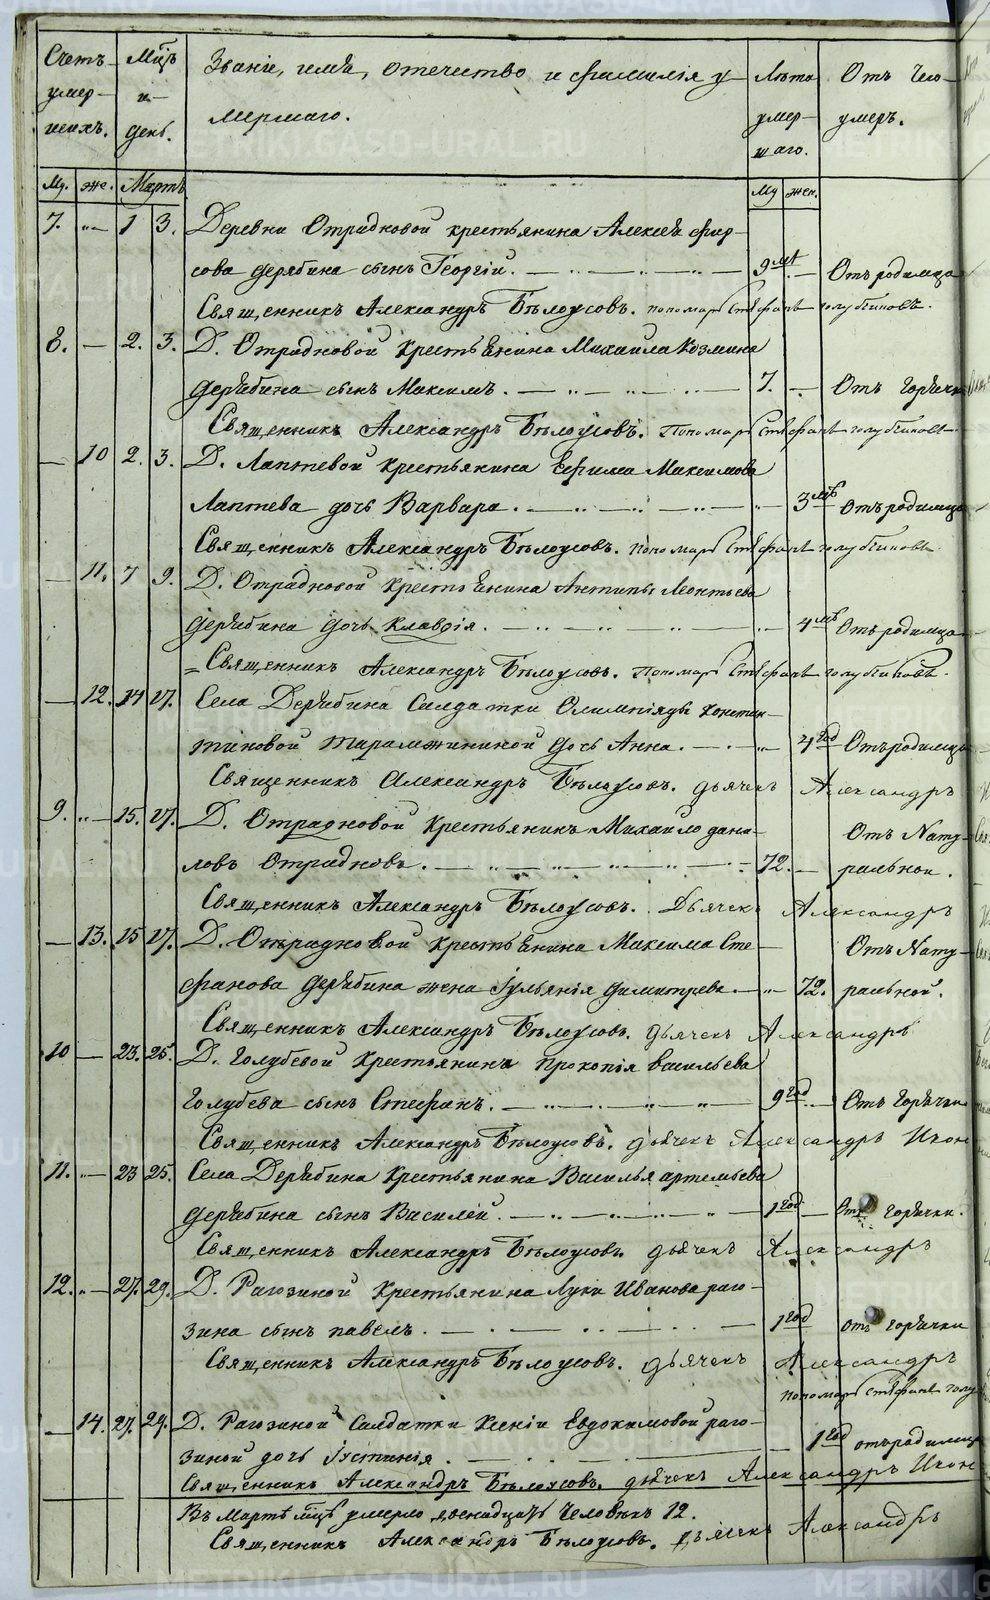 Счетъ умер- шихъ. Мцъ и день. Званіе, имя, отечество и фамилія у- Лѣта От чего
мершаго. умер- умеръ.
шаго.
Му. же. Мартъ Му жен.
7. „ 1 3. Деревни Отрадновой крестьянина Алексѣя Фир-
сова Дерябина сынъ Георгій. 9 мѣ Отъ родимца
Священникъ Александръ Бѣлоусовъ. пономарь Стефанъ Голубчиковъ.
8. — 2. 3. Д. Отрадновой крестьянина Михаила Козмина
Дерябина сынъ Максимъ. 7. Отъ горячки
Священникъ Александръ Бѣлоусовъ. Пономарь Стефанъ Голубчиковъ
— 10 2. 3. Д. Лаптевой крестьянина Ефима Максимова
Лаптева дочь Варвара. 3 мѣ Отъ родимца
Священникъ Александръ Бѣлоусовъ. пономарь Стефанъ Голубчиковъ
— 11. 7 9. Д. Отрадновой крестьянина Антипы Леонтьева
Дерябина дочь Клавдія. 4 мѣ Отъ родимца
Священникъ Александръ Бѣлоусовъ. Пономарь Стефанъ Голубчиковъ.
— 12. 14 17. Села Дерябина Салдатки Олимпіяды Констан-
тиновой дочь Анна. 4 год Отъ родимца
Священникъ Александръ Бѣлоусовъ. дьячекъ Александръ
9. „ 15. 17. Д. Отрадновой крестьянинъ Михайло Дани-
ловъ Отрадновъ. 72. Отъ Нату-
ральной.
Священникъ Александръ Бѣлоусовъ. Дьячекъ Александръ
— 13. 15 17. Д. Отрадновой крестьянина Максима Сте- Отъ Нату-
фанова Дерябина жена Іульянія Димитрева. 72. ральной.
Священникъ Александръ Бѣлоусовъ. дьячекъ Александръ
10 — 23. 25. Д. Голубевой крестьянина Прокопія Васильева
Голубева сынъ Стефанъ. 9 год Отъ Горячки
Священникъ Александръ Бѣлоусовъ. дьячекъ Александръ Икон
11. — 23 25. Села Дерябина крестьянина Василья Артемьева
Дерябина сынъ Василей. 1 год Отъ горячки.
Священникъ Александръ Бѣлоусовъ. дьячекъ Александръ
12. „ 27. 29. Д. Рагозиной крестьянина Луки Иванова Раго-
зина сынъ Павелъ. 1 год отъ горячки
Священникъ Александръ Бѣлоусовъ. дьячекъ Александръ
пономарь Стефанъ Голу
— 14. 27. 29. Д. Рагозиной Салдатки Ксеніи Евдокимовой Раго-
зиной дочь Іустинія. 1 год отъ родимца
Священникъ Александръ Бѣлоусовъ. дьячекъ Александръ Икон
Въ Мартѣ мцѣ умерло двенадцать человѣкъ 12.
Священникъ Александръ Бѣлоусовъ. дьячекъ Александръ